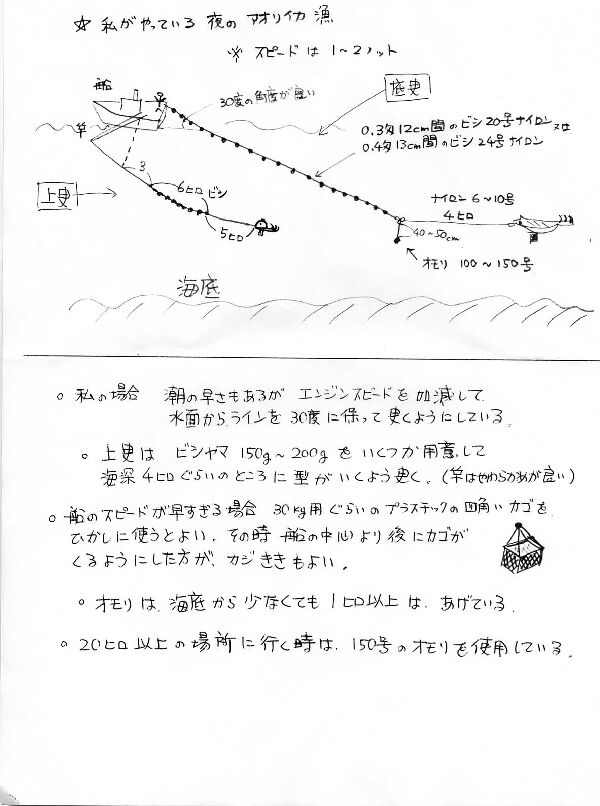 ☆ 私がやっている 夜の アオリイカ 漁
※ スピードは 1～2ノット
船
30度の角度が良い
底曳
竿
0.3匁 12cm間のビシ 20号ナイロン 又は
0.4匁 13cm間のビシ 24号ナイロン
3
上曳
6ヒロ ビシ
ナイロン 6～10号
4ヒロ
5ヒロ
40～50cm
オモリ 100～150号
海底
○ 私の場合 潮の早さもあるが エンジンスピードを加減して
水面からラインを 30度に保って曳くようにしている.
○ 上曳は ビシヤマ 150g～200g を いくつか用意して
海深 4ヒロぐらいのところに 型がいくよう曳く.(竿はやわらかめが良い)
○ 船のスピードが早すぎる場合 30kg用ぐらいのプラステックの四角いカゴを
ひかしに使うとよい. その時 船の中心より後にカゴが
くるようにした方が、カジききもよい.
○ オモリは. 海底から少なくても 1ヒロ以上は. あげている.
○ 20ヒロ以上の場所に行く時は. 150号のオモリを使用している.